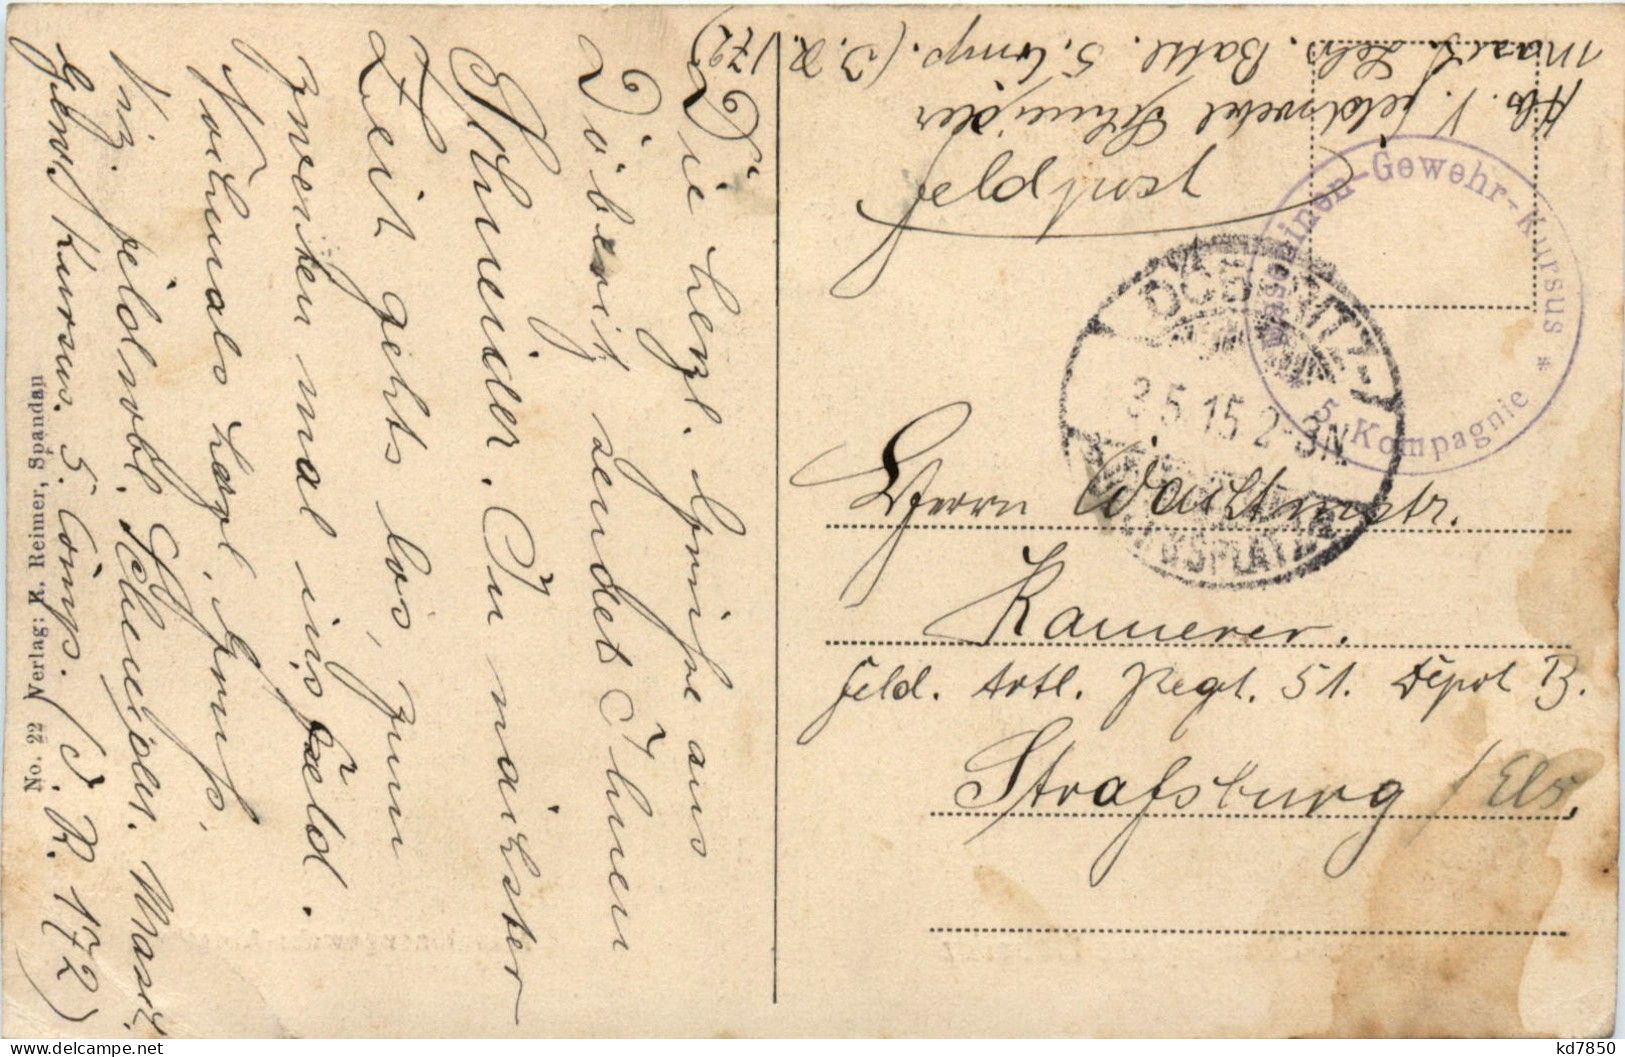 Die herzl. Grüße aus
Döberitz sendet Ihnen
Schneider. In nächster
Zeit gehts los, zum
zweiten mal ins Feld.
Nochmals herzl. Gruß,
Viz. feldwbl. Schneider. Masch.
Gew. Kursus. 5. Comp. (J. R. 172)
No. 22 Verlag: R. Reimer, Spandau
Abs. V. feldwebel Schneider
Masch. Lehr. Batl. 5. Comp. (J. R. 172)
Feldpost
Maschinen-Gewehr-Kursus
* 5. Kompagnie *
DÖBERITZ
5.15 2-3N
ÜBUNGSPLATZ
Herrn Wachtmstr.
Kamerer.
Feld. Artl. Regt. 51. Depot B.
Strafsburg / Els.
kd7850